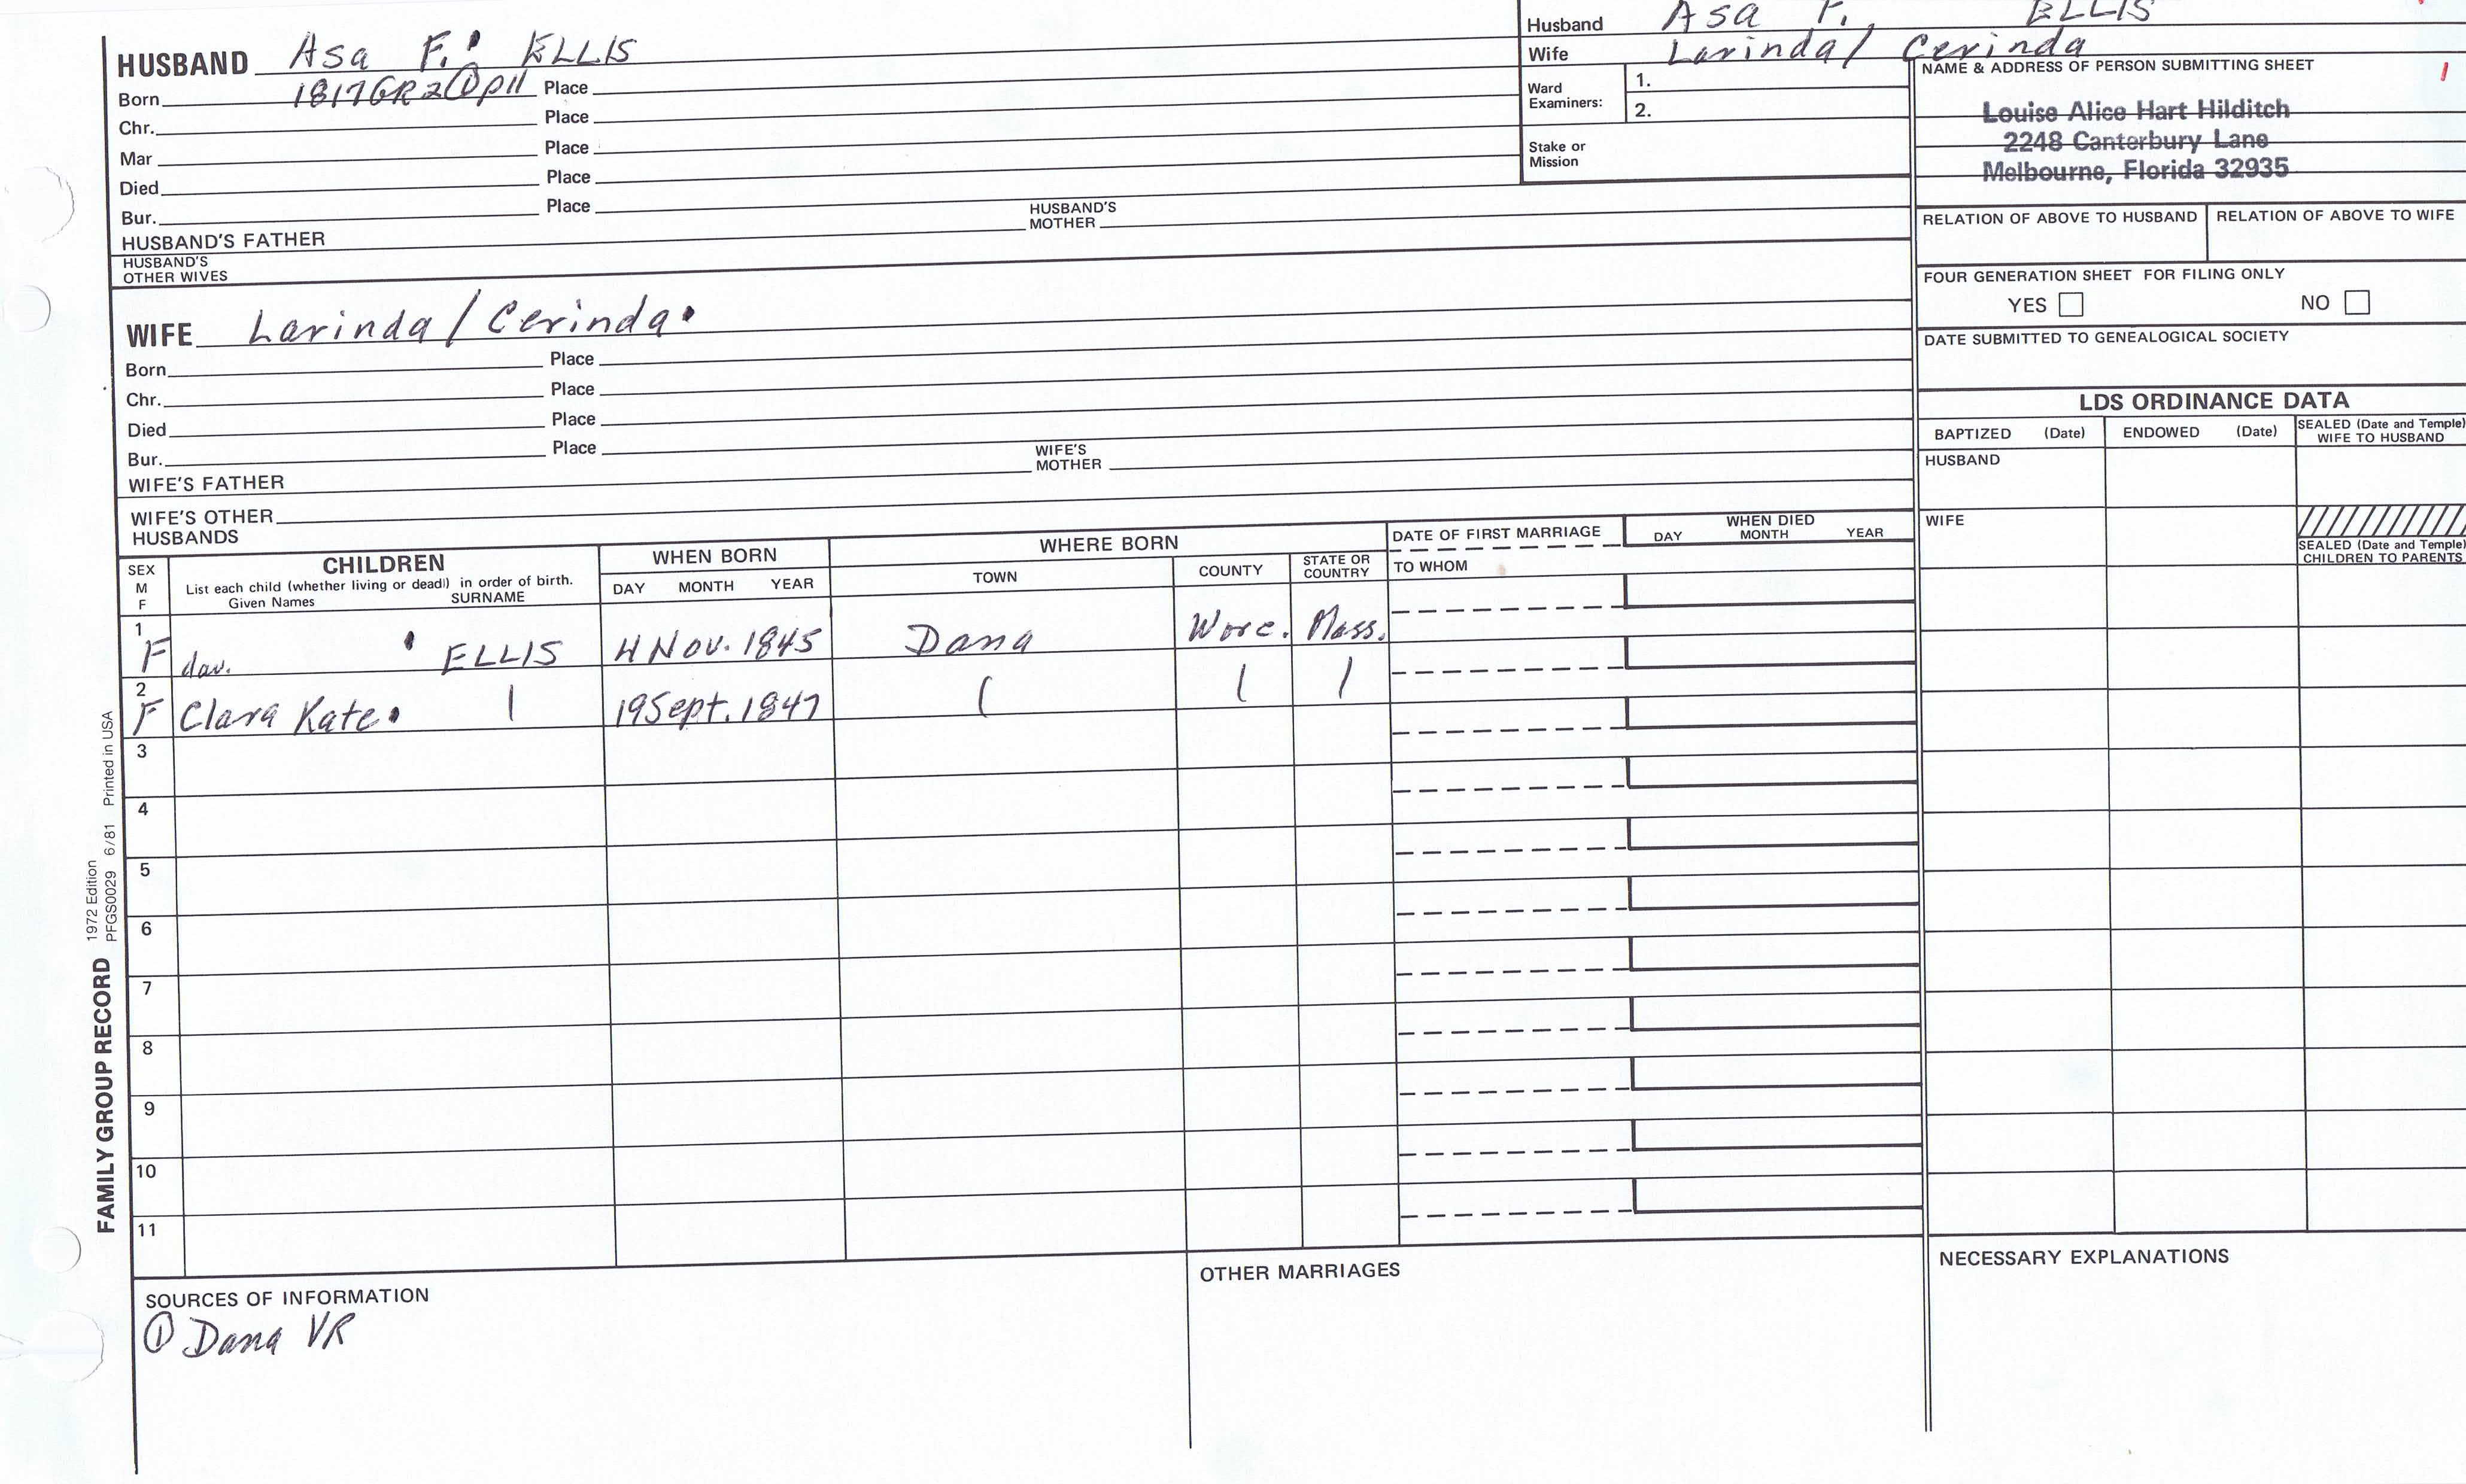 Husband Asa F. ELLIS
Wife Larinda/ Cerinda
HUSBAND Asa F. ELLIS
Born 1817GR2①p11 Place
Chr. Place
Mar Place
Died Place
Bur. Place
HUSBAND'S FATHER
HUSBAND'S MOTHER
HUSBAND'S OTHER WIVES
Ward Examiners: 1.
2.
Stake or Mission
NAME & ADDRESS OF PERSON SUBMITTING SHEET
Louise Alice Hart Hilditch
2248 Canterbury Lane
Melbourne, Florida 32935
RELATION OF ABOVE TO HUSBAND RELATION OF ABOVE TO WIFE
FOUR GENERATION SHEET FOR FILING ONLY
YES NO
DATE SUBMITTED TO GENEALOGICAL SOCIETY
WIFE Larinda/Cerinda
Born Place
Chr. Place
Died Place
Bur. Place
WIFE'S FATHER
WIFE'S MOTHER
WIFE'S OTHER HUSBANDS
LDS ORDINANCE DATA
BAPTIZED (Date) ENDOWED (Date) SEALED (Date and Temple) WIFE TO HUSBAND
HUSBAND
WIFE
SEALED (Date and Temple) CHILDREN TO PARENTS
SEX M F
CHILDREN
List each child (whether living or dead) in order of birth.
Given Names SURNAME
WHEN BORN
DAY MONTH YEAR
WHERE BORN
TOWN COUNTY STATE OR COUNTRY
DATE OF FIRST MARRIAGE
TO WHOM
WHEN DIED
DAY MONTH YEAR
1 F dau. ELLIS 4 Nov. 1845 Dana Worc. Mass.
2 F Clara Kate 19 Sept. 1847
3
4
5
6
7
8
9
10
11
SOURCES OF INFORMATION
① Dana VR
OTHER MARRIAGES
NECESSARY EXPLANATIONS
FAMILY GROUP RECORD 1972 Edition
PFGS0029 6/81 Printed in USA